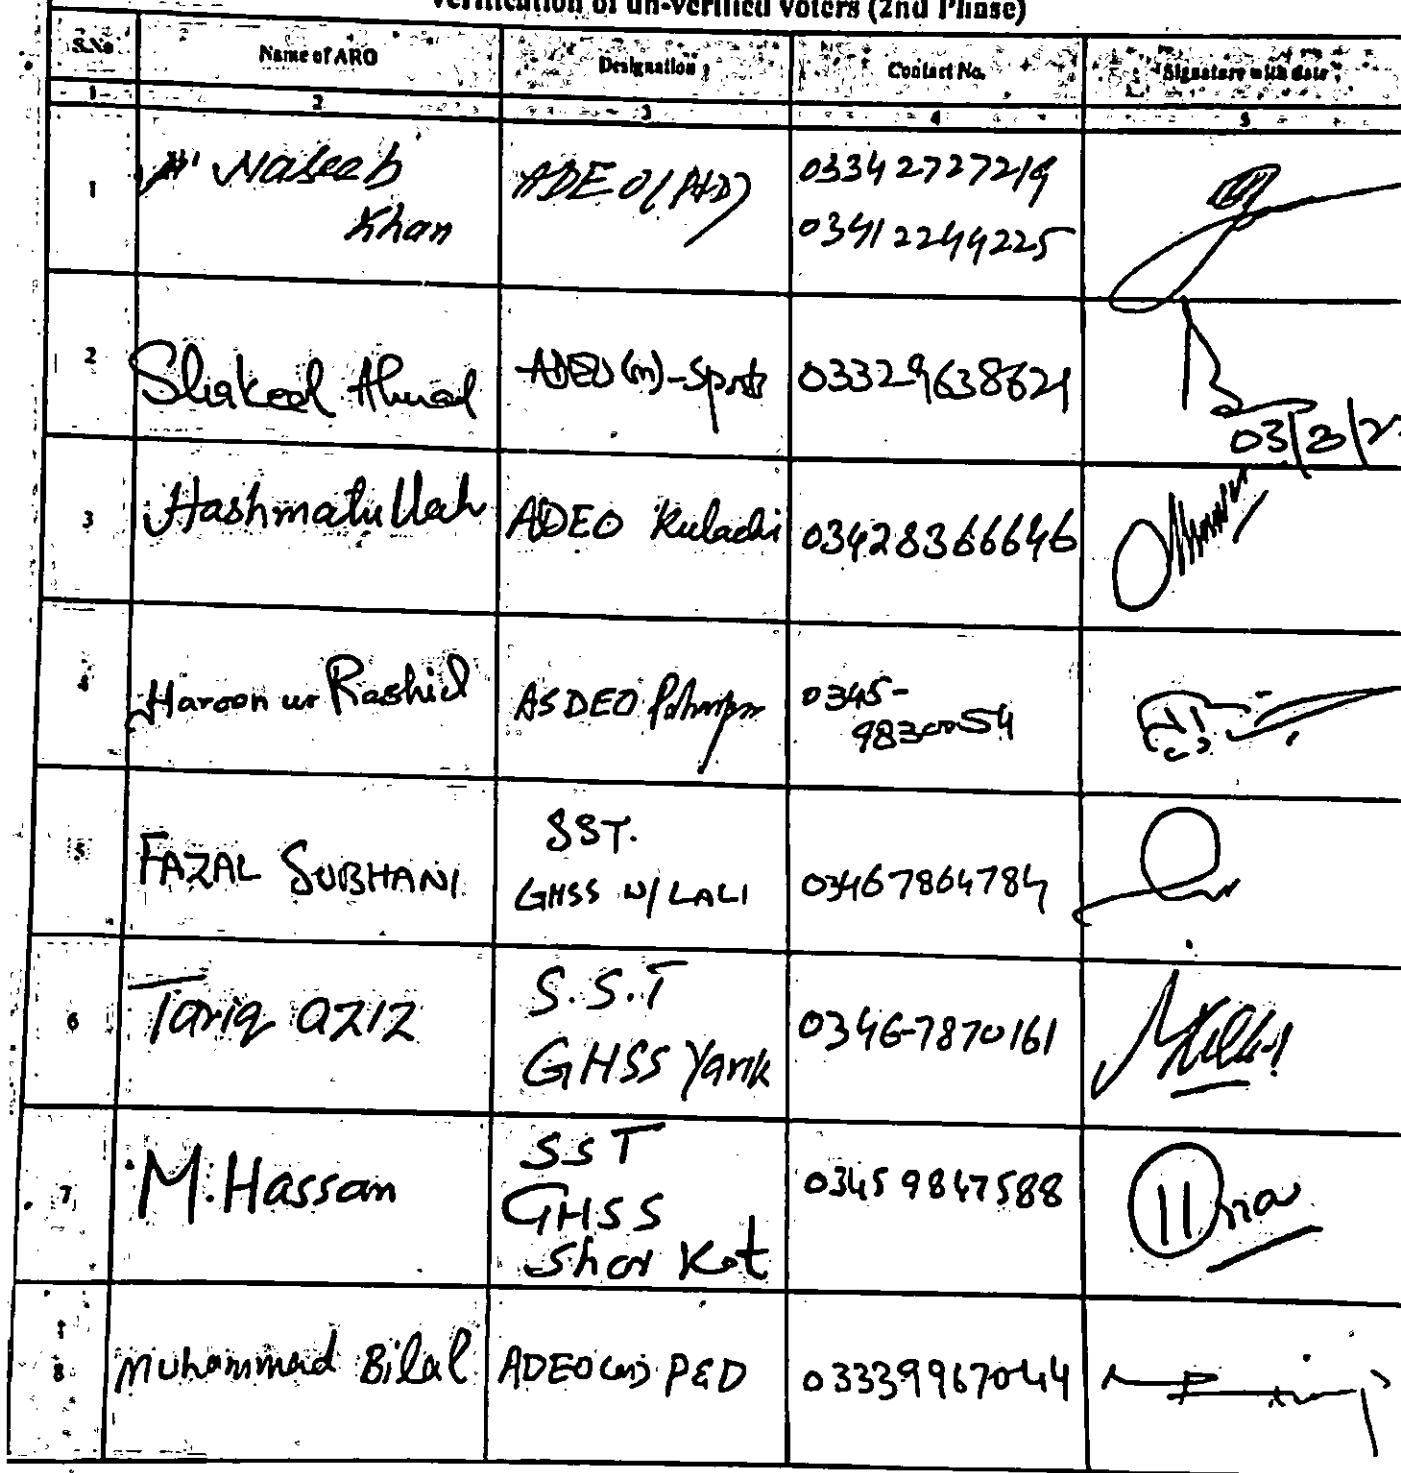 verification of un-verified voters (2nd Phase)
S.No Name of ARO Designation Contact No. Signature with date
1 2 3 4 5
1 Naseeb Khan ADEO (P&D) 03342727219 03412244225
2 Shakeel Ahmad ADEO (m)-Sports 03329638621
03/3/
3 Hashmatullah ADEO Kulachi 03428366646
4 Haroon ur Rashid ASDEO 0345-
9830054
5 FAZAL SUBHANI SST.
GHSS W/LALI 03467864784
6 Tariq aziz S.S.T
GHSS Yarik 0346-7870161
7 M.Hassan SST
GHSS
Shor Kot 03459847588
8 Muhammad Bilal ADEO (m) P&D 03339967044